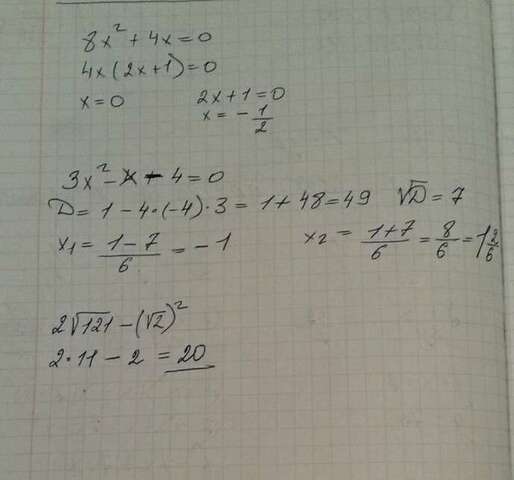 8x² + 4x = 0
4x(2x+1) = 0
x = 0    2x + 1 = 0
x = - 1/2
3x² - x - 4 = 0
D = 1 - 4·(-4)·3 = 1 + 48 = 49    √D = 7
x₁ = (1-7)/6 = -1    x₂ = (1+7)/6 = 8/6 = 1 2/6
2√121 - (√2)²
2·11 - 2 = 20